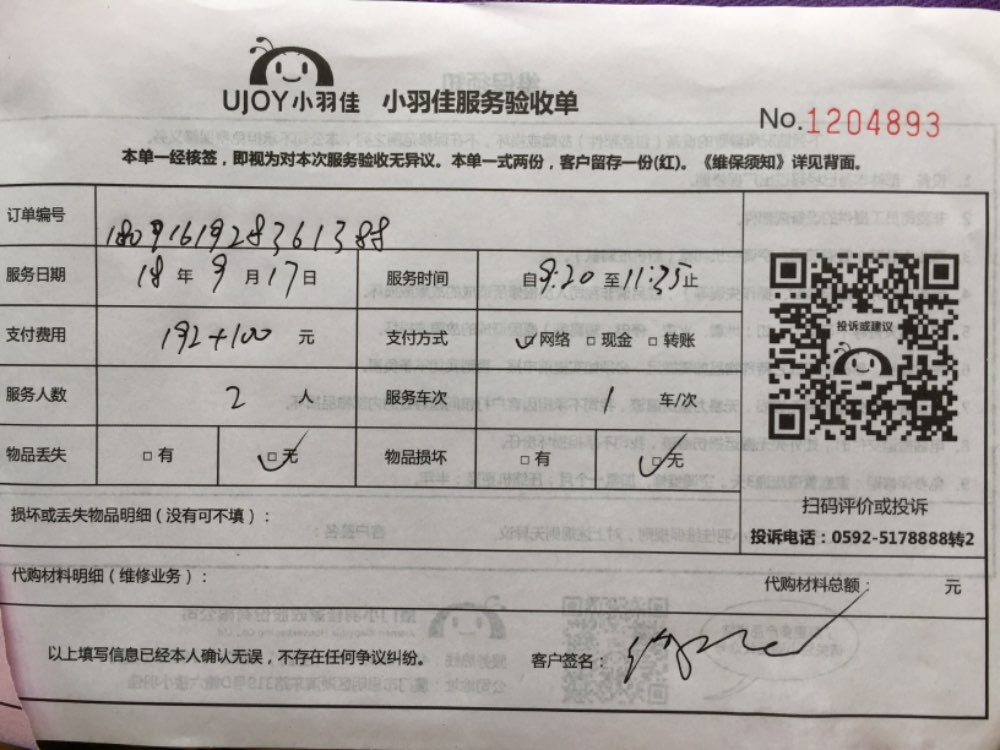 UJOY小羽佳 小羽佳服务验收单
No.1204893
本单一经核签，即视为对本次服务验收无异议。本单一式两份，客户留存一份(红)。《维保须知》详见背面。
订单编号 1809161928361388
服务日期 18 年 9 月 17 日 服务时间 自 9:20 至 11:35 止
支付费用 192+100 元 支付方式 ☑网络 □现金 □转账
服务人数 2 人 服务车次 1 车/次
物品丢失 □有 ☑无 物品损坏 □有 ☑无
投诉或建议
扫码评价或投诉
投诉电话：0592-5178888转2
损坏或丢失物品明细（没有可不填）：
代购材料明细（维修业务）： 代购材料总额： 元
以上填写信息已经本人确认无误，不存在任何争议纠纷。 客户签名：